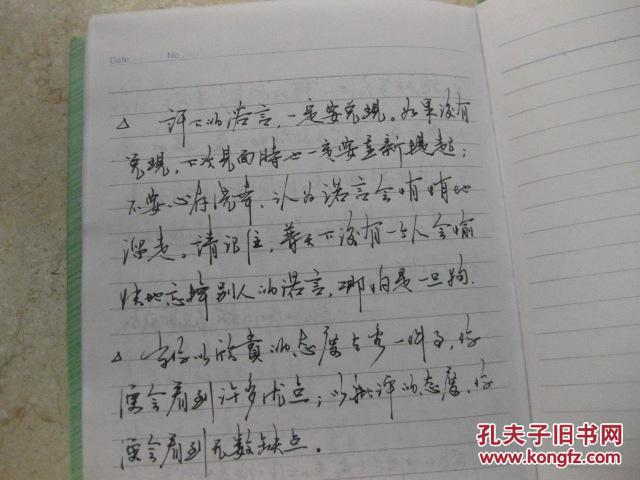 Date. No.
△ 许下的诺言,一定要兑现。如果没有
兑现,下次见面时也一定要重新提起;
不要心存侥幸,认为诺言会悄悄地
溜走。请记住,普天下没有一个人会愉
快地忘掉别人的诺言,哪怕是一旦的.
△ 当你以欣赏的态度去看一件事,你
便会看到许多优点;以批评的态度,你
便会看到无数缺点。
孔夫子旧书网
www.kongfz.com